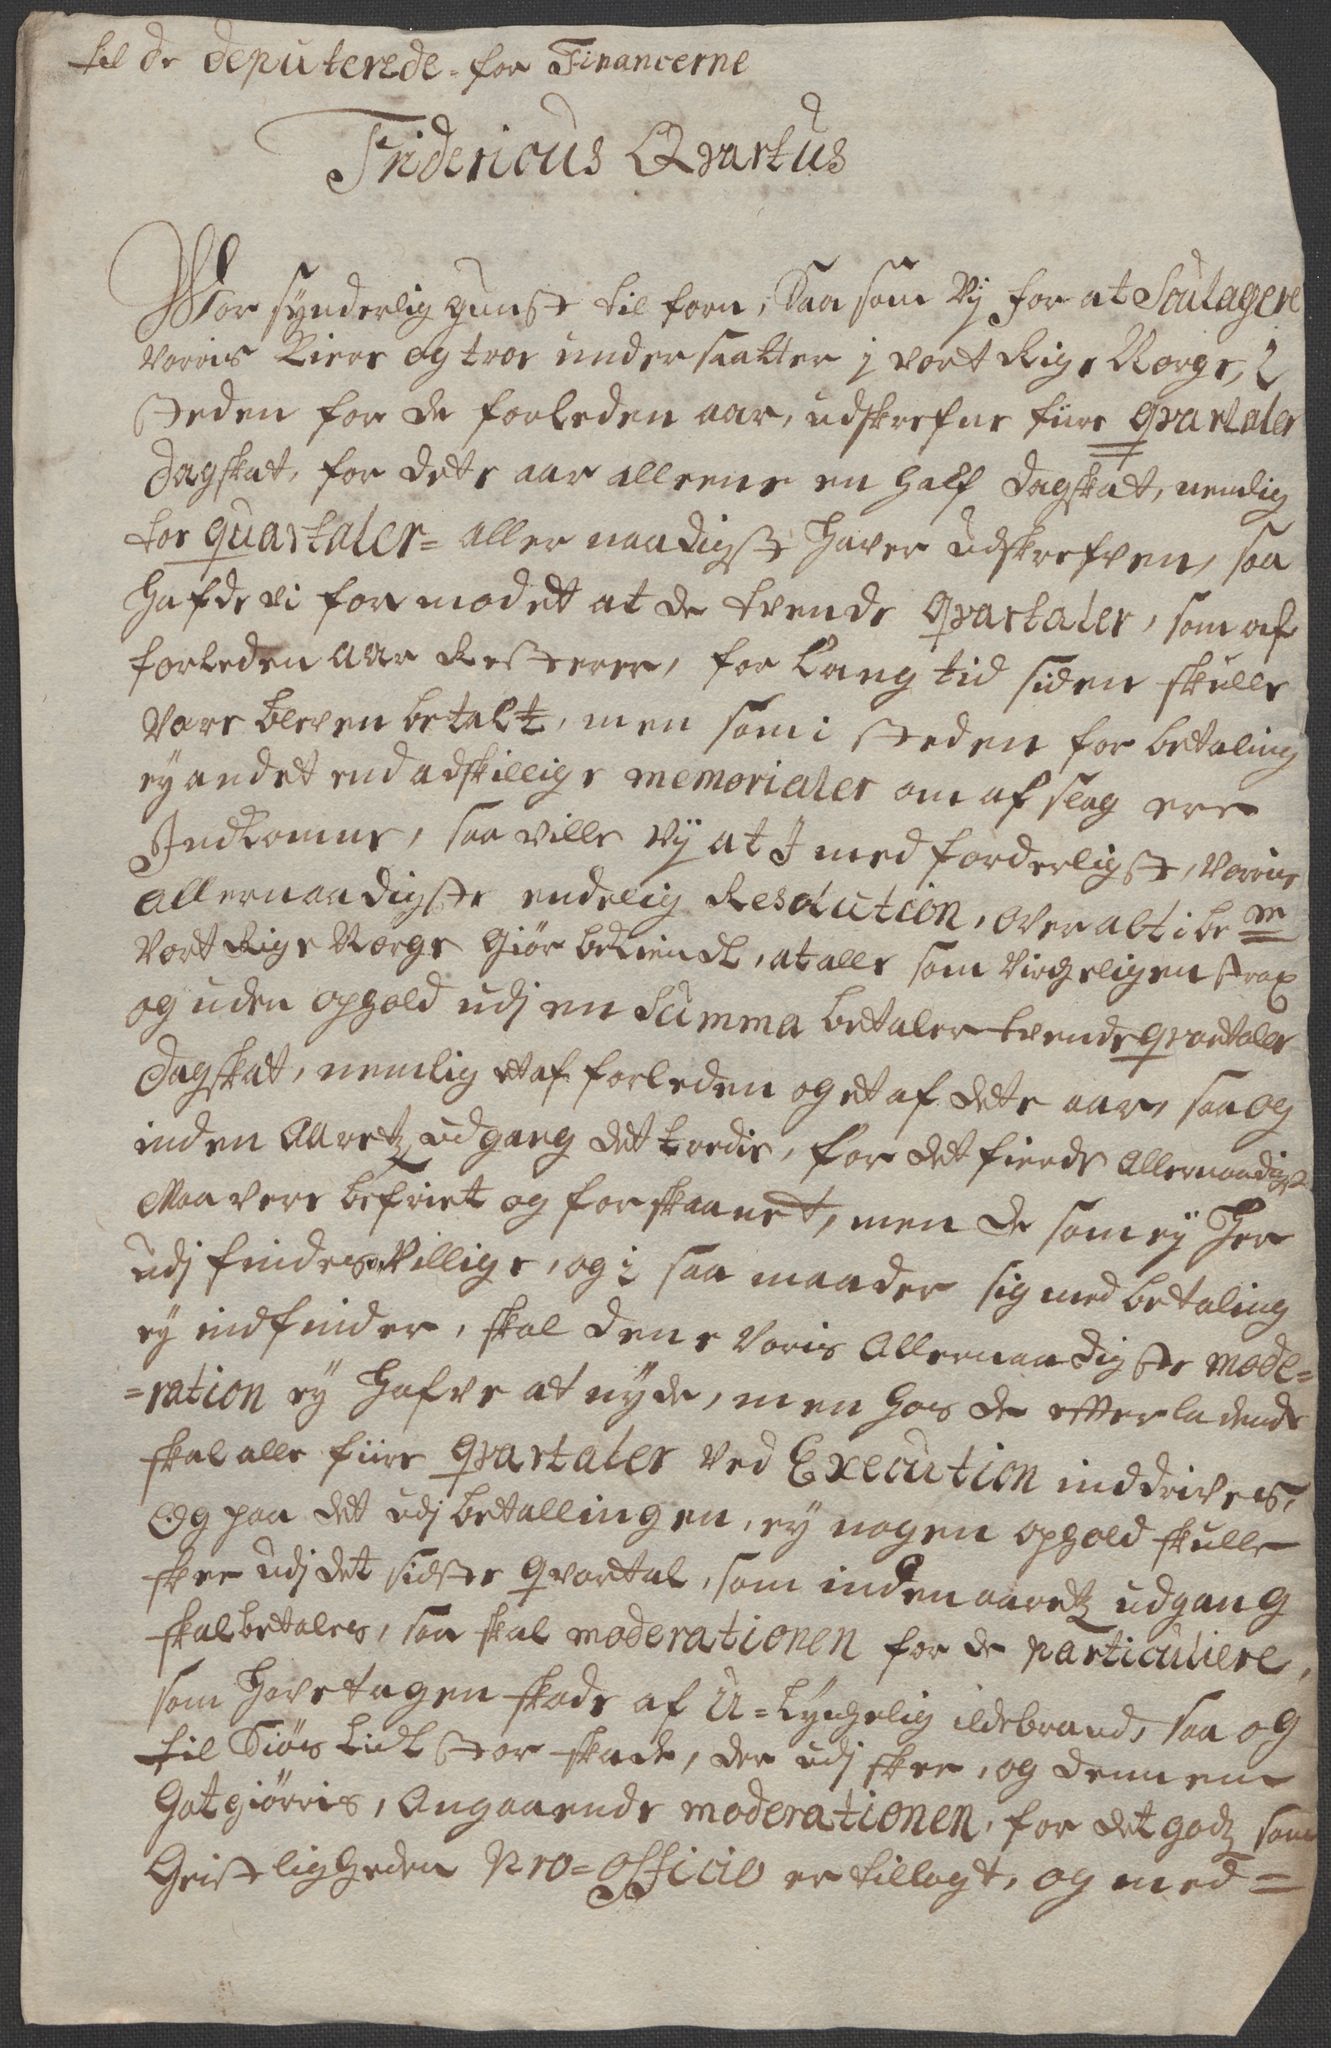 til de deputerede for Financerne
Fridericus Qvartus
Wor synderlig gunst til forn, Saa som Vy for at Soulagere
Vorris Kiere og troe undersaatter j vort Rige Norge, I
steden for de forleden aar, udskrefne fiire qvartaler
dagskat, for dete aar alleene en half dagskat, nemlig
toe quartaler= aller naadigst haver udskrefven, saa
hafde vi formodet at de tvende qvartaler, som af
forleden aar Resterer, for lang tid siden skulle
være bleven betalt, men som i steden for betaling
ey andet end adskillige memorialer om afslag ere
Indkomne, saa ville Vy at I med forderligste, Vorris
allernaadigste endelig Resolution, over alt i bem
Vort Rige Norge giør bekiendt, at alle som Virchelligen strax
og uden ophold udj en Summa betaler tvende qvartaler
dagskat, nemlig et af forleden og et af dete aar, saa og
inden Aaretz udgang det tredie, for det fierde Allernaadigst
Maa vere befriet og forskaanet, men de som ey her
udj findes Villige, og i saa maader sig med betaling
ey indfinder, skal dene Voris Allernaadigste mode=
=ration ey hafve at nyde, men hos de efterladende
skal alle fiire qvartaler ved Execution inddrives,
Og paa det udj betallingen, ey nogen ophold skulle
skee udj det sidste qvartal, som inden aaretz udgang
skal betales, saa skal moderationen for de particuliere,
som have tagen skade af U=lychelig ildebrand, saa og
til Siøes lidt stor skade, der udj skee, og dennem
Gotgiørris, Angaaende moderationen, for det godtz som
Geistligheden Pro=officio er tillagt, og med=